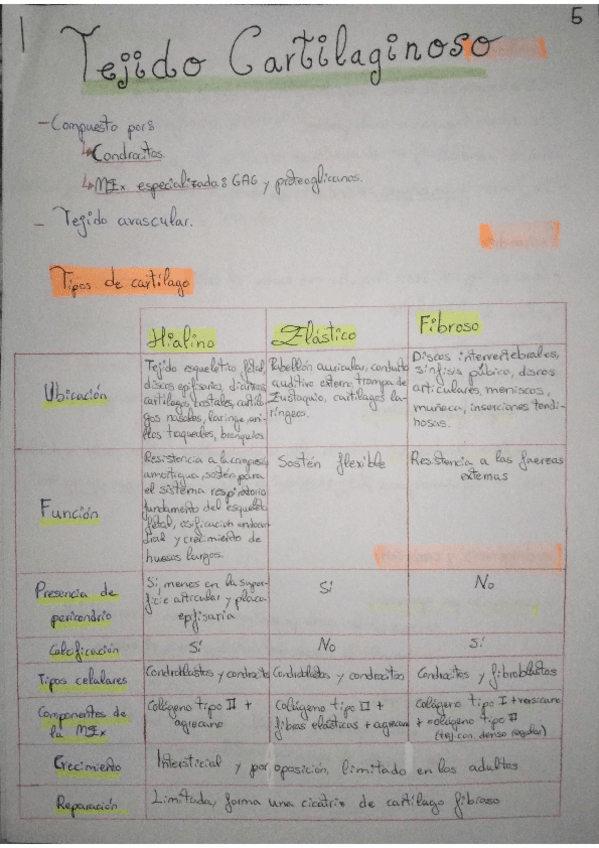 5
Tejido Cartilaginoso
- Compuesto por:
↳ Condrocitos.
↳ MEx especializada: GAG y proteoglicanos.
- Tejido avascular.
Tipos de cartílago
Hialino
Elástico
Fibroso
Ubicación
Tejido esquelético fetal,
discos epifisarios,
cartílagos costales, cartíla-
gos nasales, laringe, ani-
llos traqueales, bronquios
Pabellón auricular, conducto
auditivo externo, trompa de
Eustaquio, cartílagos la-
ríngeos.
Discos intervertebrales,
sínfisis púbica, discos
articulares, meniscos,
muñeca, inserciones tendi-
nosas.
Función
Resistencia a la compresión,
amortigua, sostén para
el sistema respiratorio
fundamento del esqueleto
fetal, osificación endocon-
dral y crecimiento de
huesos largos.
Sostén flexible
Resistencia a las fuerzas
externas
Presencia de
pericondrio
Sí, menos en la super-
ficie articular y placa
epifisaria
Sí
No
Calcificación
Sí
No
Sí
Tipos celulares
Condroblastos y condrocitos
Condroblastos y condrocitos
Condrocitos y fibroblastos
Componentes de
la MEx
Colágeno tipo II +
agrecano
Colágeno tipo II +
fibras elásticas + agrecano
Colágeno tipo I + versicano
+ colágeno tipo II
(tej. con. denso regular)
Crecimiento
Intersticial y por oposición, limitado en los adultos
Reparación
Limitada, forma una cicatriz de cartílago fibroso